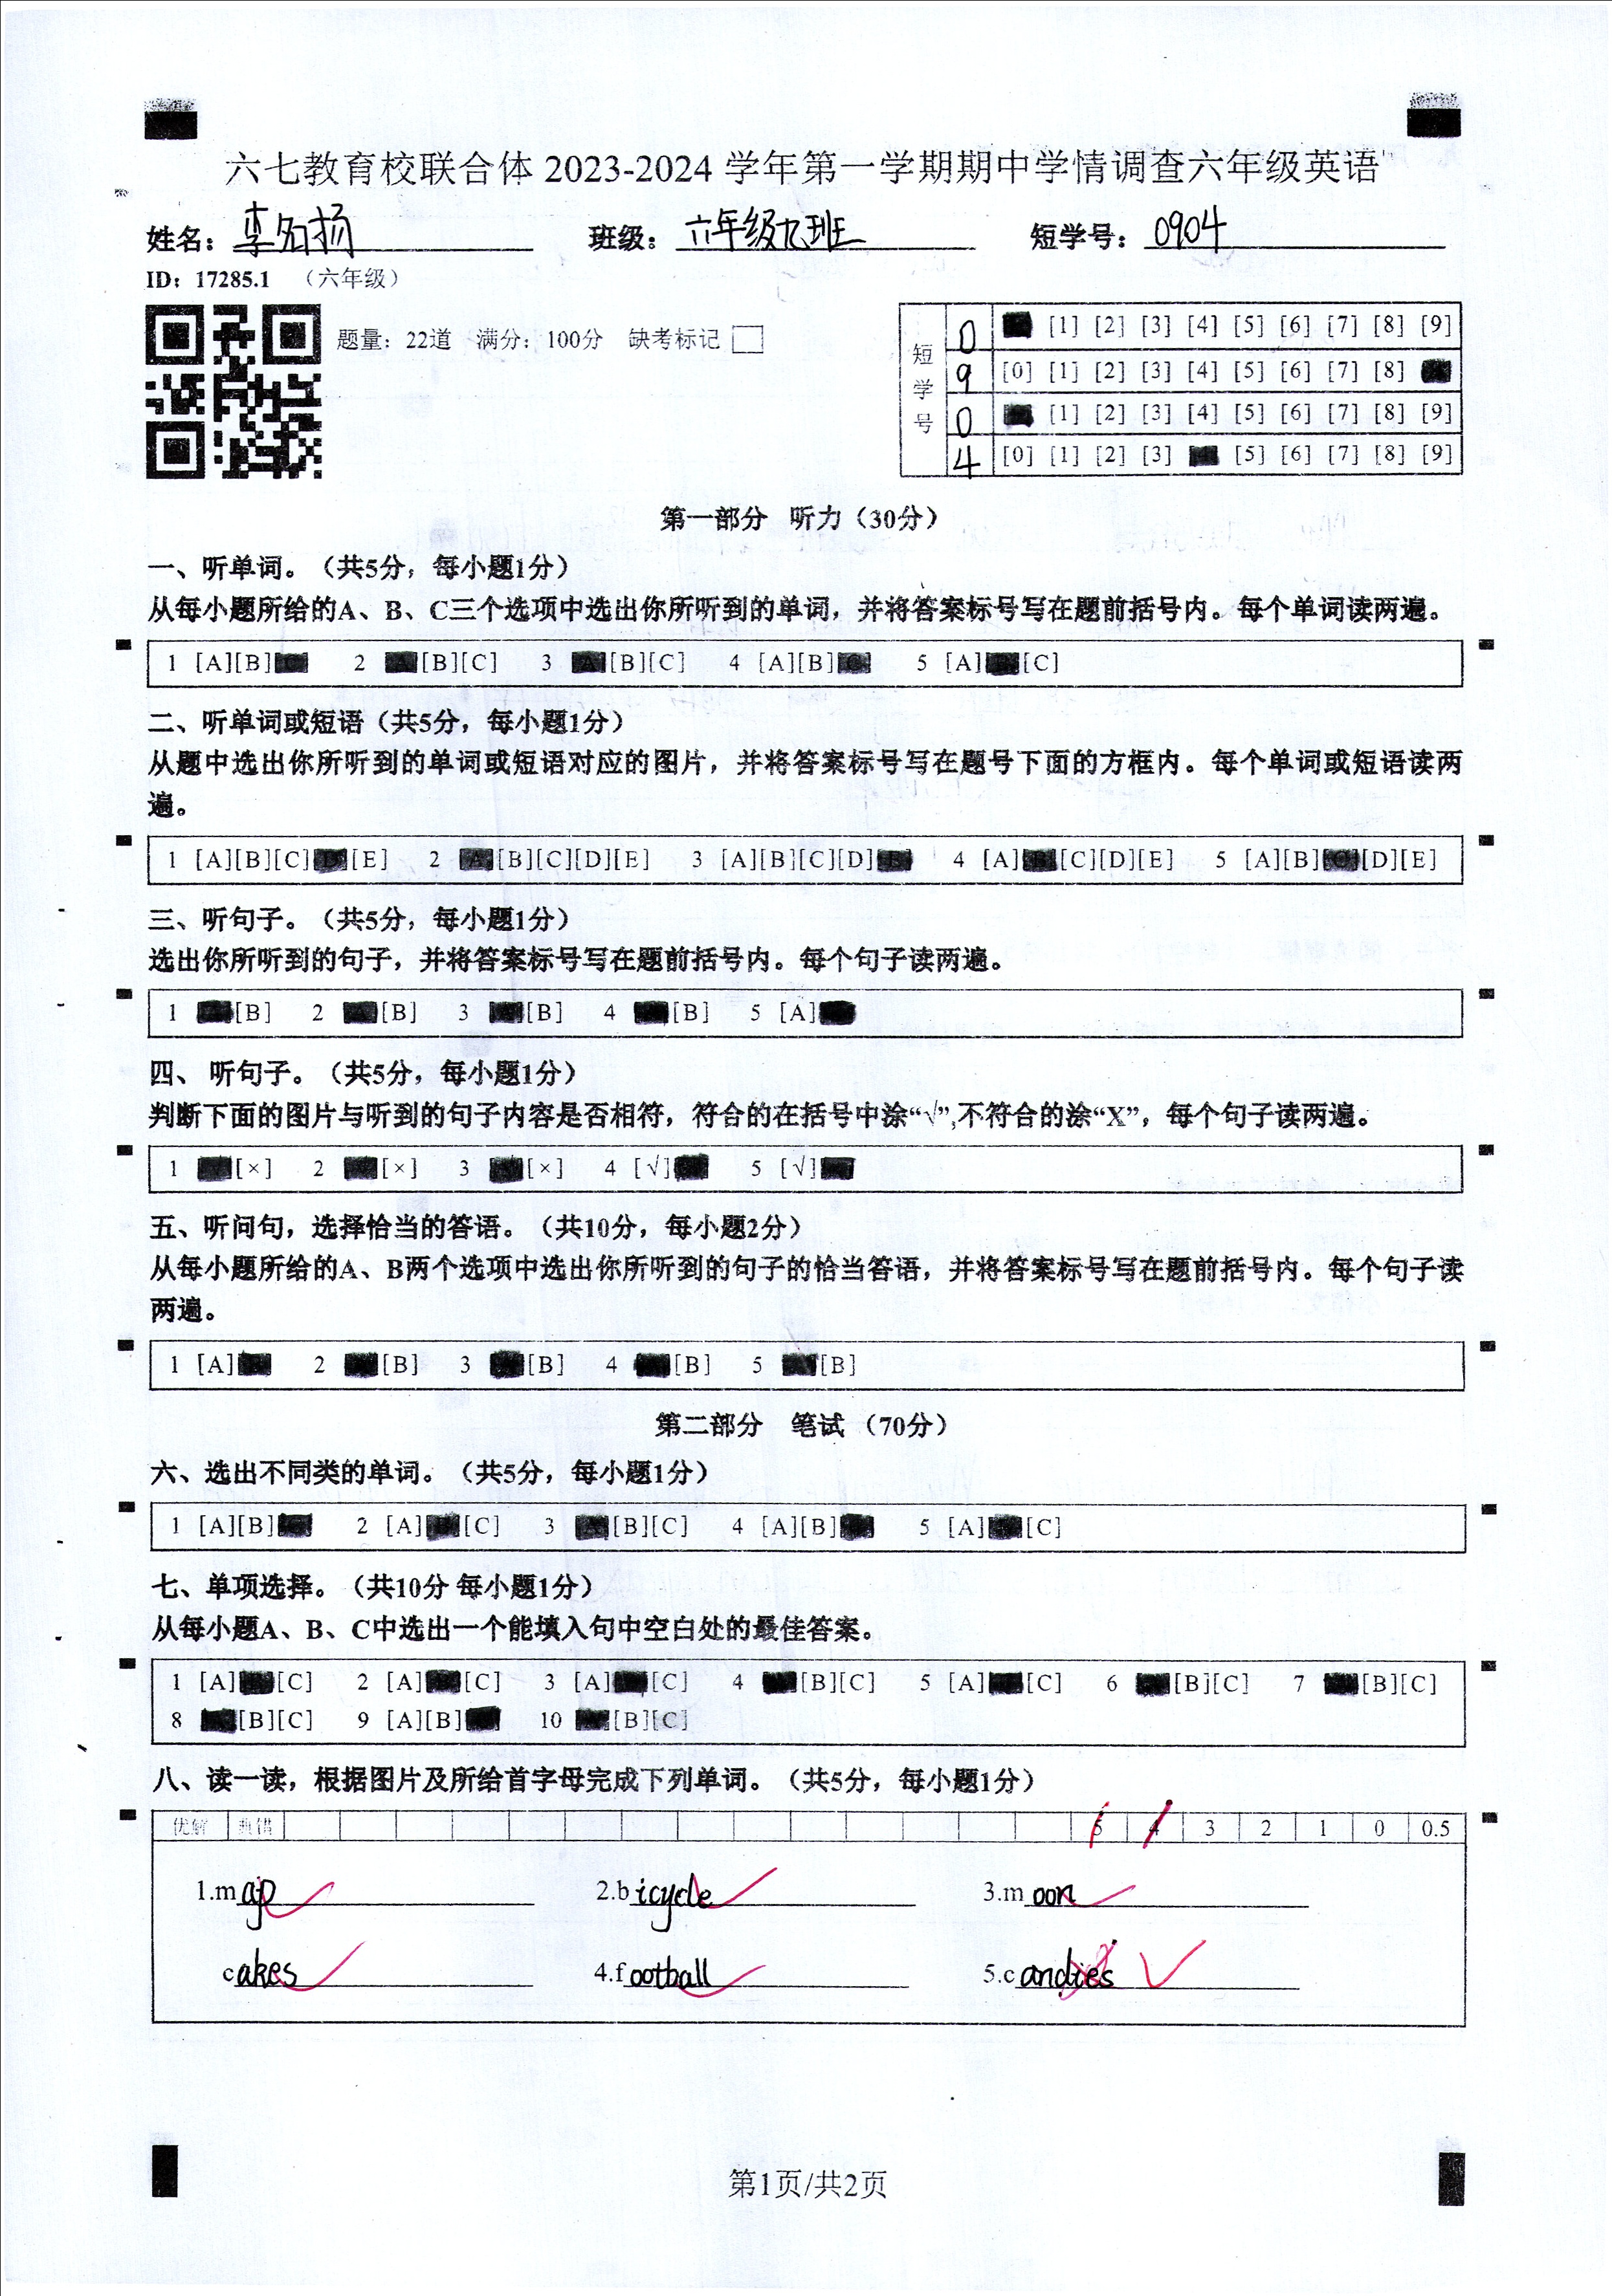 六七教育校联合体 2023-2024 学年第一学期期中学情调查六年级英语
姓名：李名扬 班级：六年级九班 短学号：0904
ID：17285.1 （六年级）
题量：22道 满分：100分 缺考标记
短学号
0 [1] [2] [3] [4] [5] [6] [7] [8] [9]
9 [0] [1] [2] [3] [4] [5] [6] [7] [8]
0 [1] [2] [3] [4] [5] [6] [7] [8] [9]
4 [0] [1] [2] [3] [5] [6] [7] [8] [9]
第一部分 听力（30分）
一、听单词。（共5分，每小题1分）
从每小题所给的A、B、C三个选项中选出你所听到的单词，并将答案标号写在题前括号内。每个单词读两遍。
1 [A][B] 2 [B][C] 3 [B][C] 4 [A][B] 5 [A] [C]
二、听单词或短语（共5分，每小题1分）
从题中选出你所听到的单词或短语对应的图片，并将答案标号写在题号下面的方框内。每个单词或短语读两
遍。
1 [A][B][C] [E] 2 [B][C][D][E] 3 [A][B][C][D] 4 [A] [C][D][E] 5 [A][B] [D][E]
三、听句子。（共5分，每小题1分）
选出你所听到的句子，并将答案标号写在题前括号内。每个句子读两遍。
1 [B] 2 [B] 3 [B] 4 [B] 5 [A]
四、 听句子。（共5分，每小题1分）
判断下面的图片与听到的句子内容是否相符，符合的在括号中涂“√”,不符合的涂“X”，每个句子读两遍。
1 [×] 2 [×] 3 [×] 4 [√] 5 [√]
五、听问句，选择恰当的答语。（共10分，每小题2分）
从每小题所给的A、B两个选项中选出你所听到的句子的恰当答语，并将答案标号写在题前括号内。每个句子读
两遍。
1 [A] 2 [B] 3 [B] 4 [B] 5 [B]
第二部分 笔试 （70分）
六、选出不同类的单词。（共5分，每小题1分）
1 [A][B] 2 [A] [C] 3 [B][C] 4 [A][B] 5 [A] [C]
七、单项选择。（共10分 每小题1分）
从每小题A、B、C中选出一个能填入句中空白处的最佳答案。
1 [A] [C] 2 [A] [C] 3 [A] [C] 4 [B][C] 5 [A] [C] 6 [B][C] 7 [B][C]
8 [B][C] 9 [A][B] 10 [B][C]
八、读一读，根据图片及所给首字母完成下列单词。（共5分，每小题1分）
优解 典错 5 4 3 2 1 0 0.5
1.map 2.bicycle 3.moon
cakes 4.football 5.candies
第1页/共2页